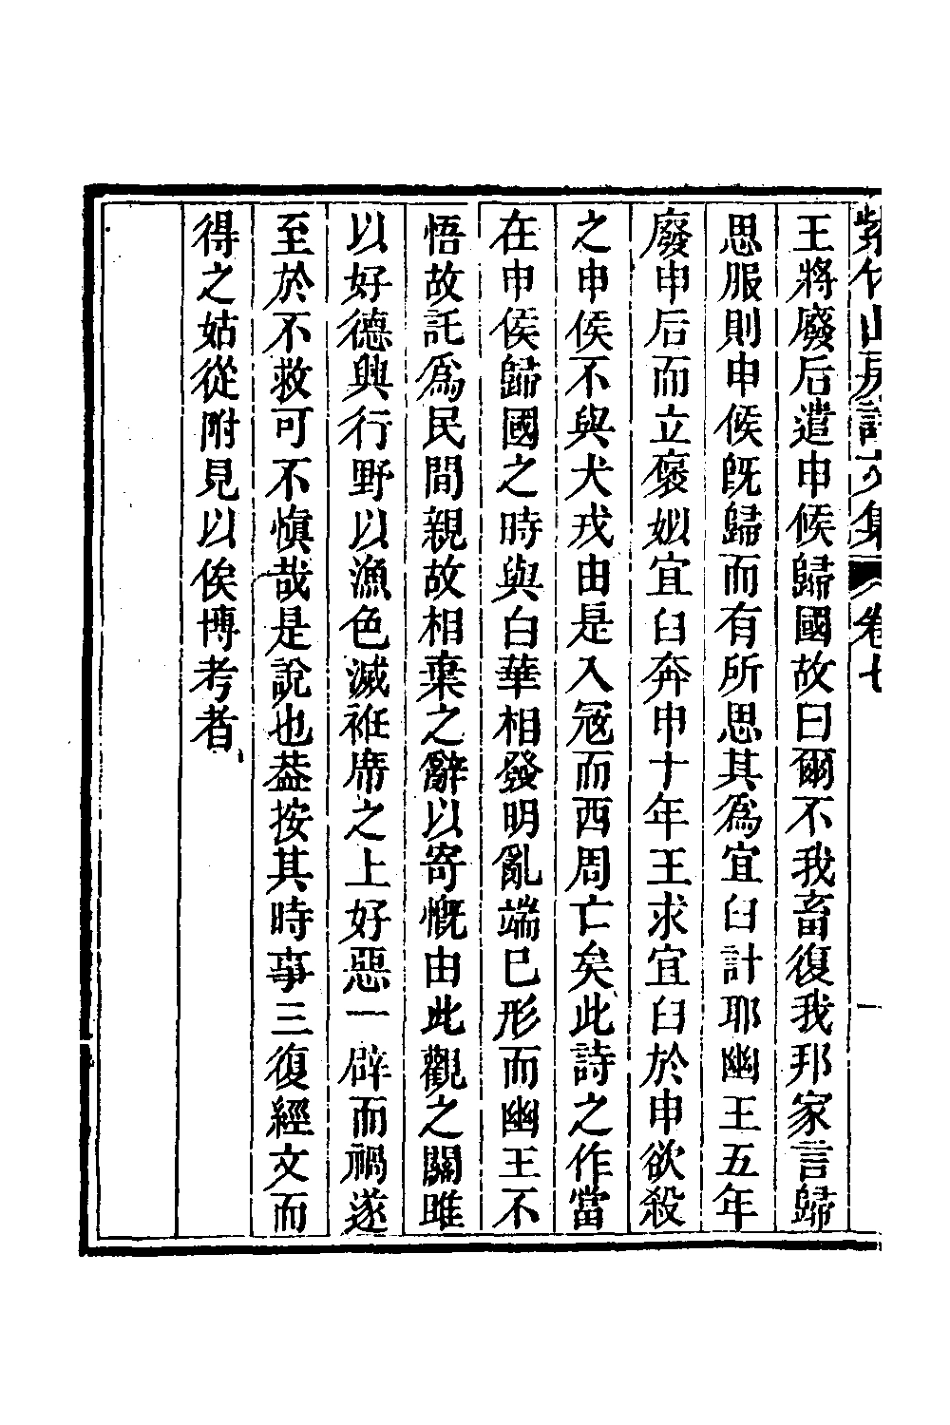 紫竹山房詩文集 卷七
王將廢后遣申侯歸國故曰爾不我畜復我邦家言歸
思服則申侯既歸而有所思其為宜臼計耶幽王五年
廢申后而立褒姒宜臼奔申十年王求宜臼於申欲殺
之申侯不與犬戎由是入寇而西周亡矣此詩之作當
在申侯歸國之時與白華相發明亂端已形而幽王不
悟故託為民間親故相棄之辭以寄慨由此觀之關雎
以好德興行野以漁色滅袵席之上好惡一辟而禍遂
至於不救可不慎哉是說也葢按其時事三復經文而
得之姑從附見以俟博考者